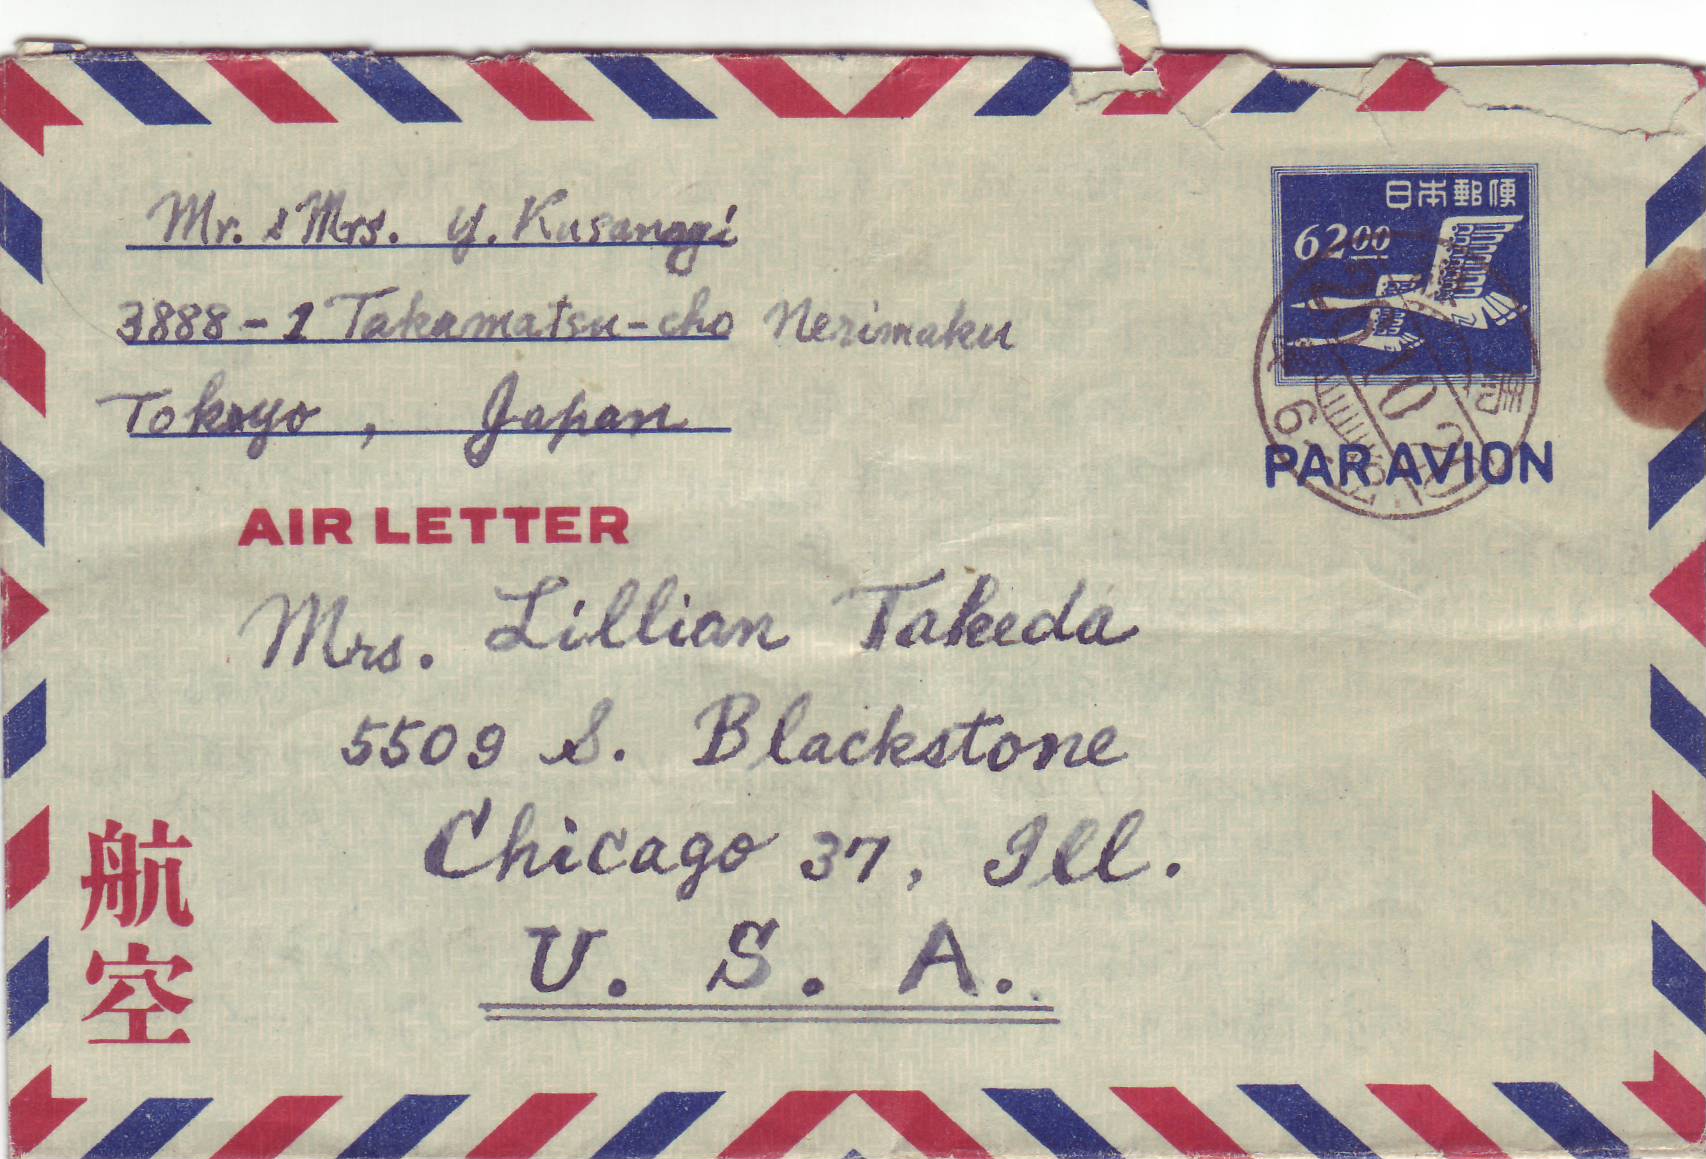 Mr. & Mrs. Y. Kusanagi
3888-1 Takamatsu-cho Nerimaku
Tokoyo, Japan
日本郵便
62.00
PAR AVION
AIR LETTER
Mrs. Lillian Takeda
5509 S. Blackstone
Chicago 37, Ill.
U. S. A.
航空